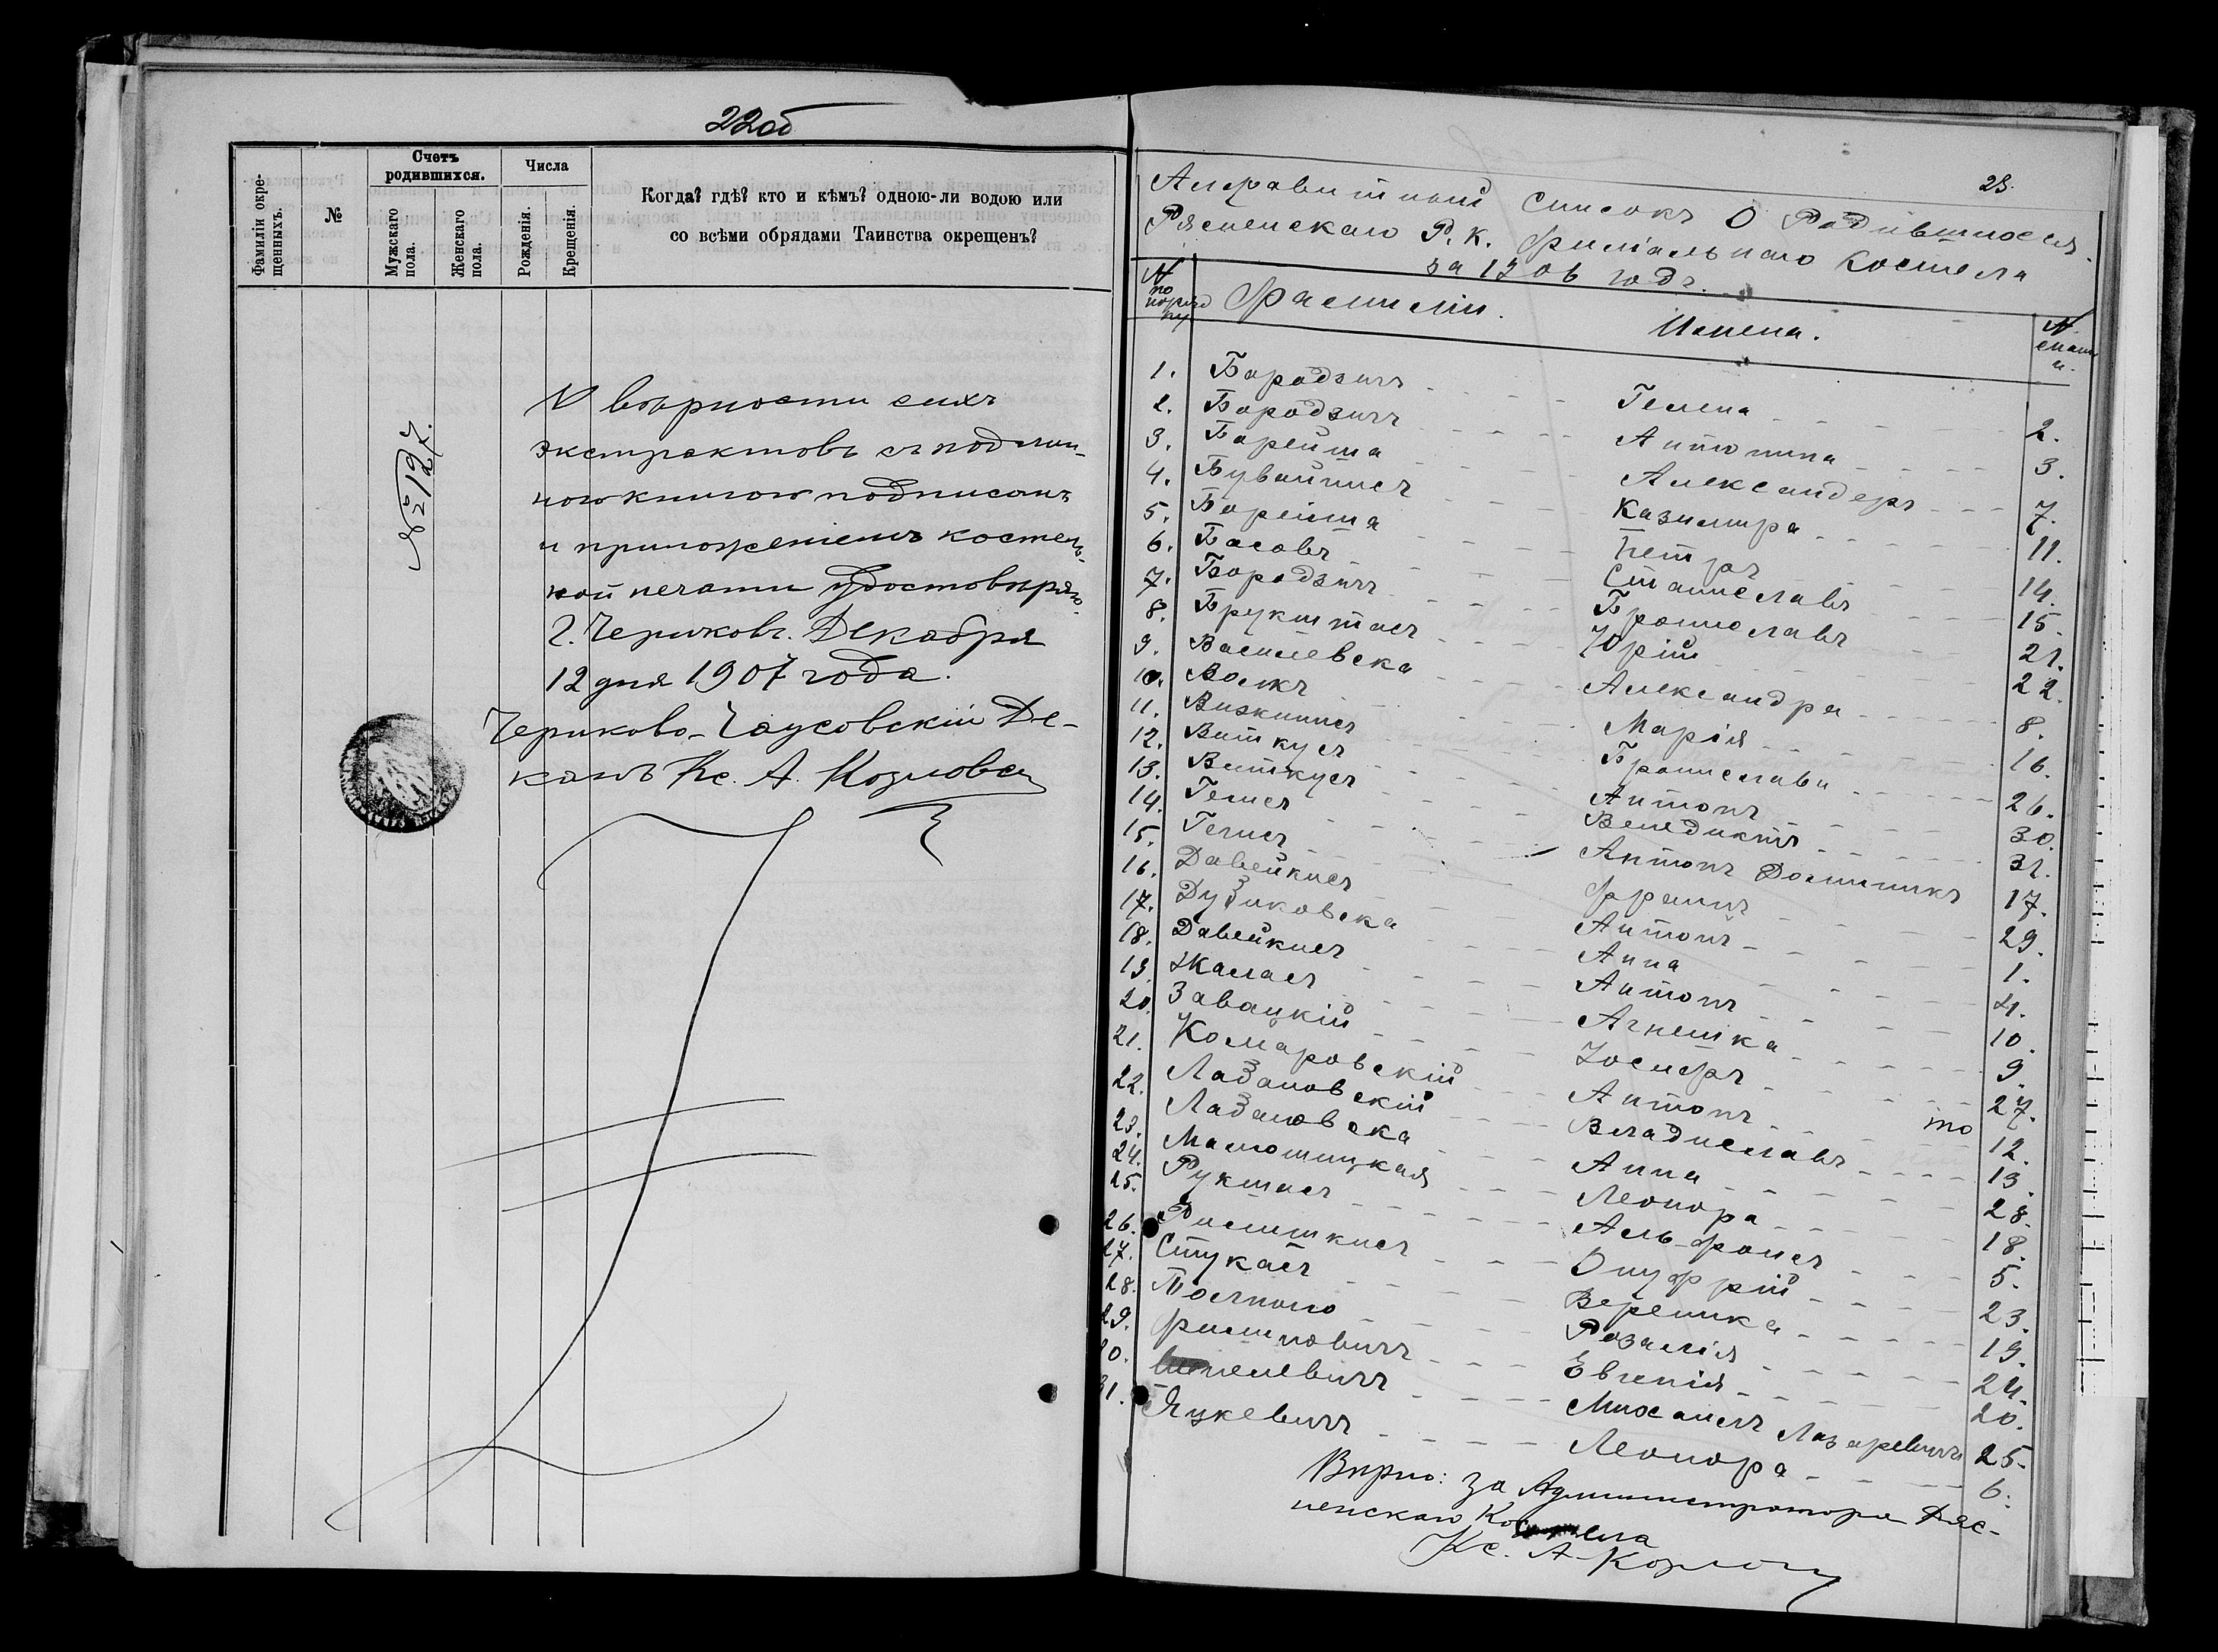 22об
Фамиліи окрещенныхъ.
№
Счетъ родившихся.
Мужскаго пола.
Женскаго пола.
Числа
Рожденія.
Крещенія.
Когда? гдѣ? кто и кѣмъ? одною-ли водою или
со всѣми обрядами Таинства окрещенъ?
№ 127.
У вѣрности сихъ
экстрактовъ съ подлин-
ною книгою подписомъ
и приложеніемъ костель-
ной печати удостовѣряю.
Г. Чериковъ. Декабря
12 дня 1907 года.
Чериково-Чаусовскій Де-
канъ Кс. А. Козловск
23.
Алфавитный Списокъ О Родившихся
Рясненскаго Р. К. филіальнаго Костела
за 1906 годъ.
№ по порядку Фамиліи. Имена. № стати.
1. Бородзичъ Гелена 2.
2. Бородзичъ Антонина 3.
3. Борейша Александеръ 7.
4. Бувайнисъ Казимира 11.
5. Борейша Петръ 14.
6. Басовъ Станиславъ 15.
7. Бородзичъ Брониславъ 21.
8. Брукштасъ Юрій 22.
9. Василевска Александра 8.
10. Волкъ Марія 16.
11. Визкинисъ Бронислава 26.
12. Виткусъ Антонъ 30.
13. Виткусъ Венедиктъ 31.
14. Гечисъ Антонъ Доминикъ 17.
15. Гечисъ Францъ 29.
16. Давейкисъ Антонъ 1.
17. Дузиковска Анна 4.
18. Давейкисъ Антонъ 10.
19. Жаласъ Агнешка 9.
20. Завацкій Іосифъ 27.
21. Комаровскій Антонъ 12.
22. Лазановскій Владиславъ 13.
23. Лазановска Анна 28.
24. Леонора 18.
25. Рукшисъ Альфонсъ 5.
26. Римшкисъ Онуфрій 23.
27. Стукасъ Вероника 19.
28. Розалія 24.
29. Филиповичъ Евгенія 20.
30. Михаилъ Лазаревичъ 25.
31. Яцкевичъ Леонора 6.
Вѣрно: за Администратора Ряс-
ненскаго Костела
Кс. А. Козлов